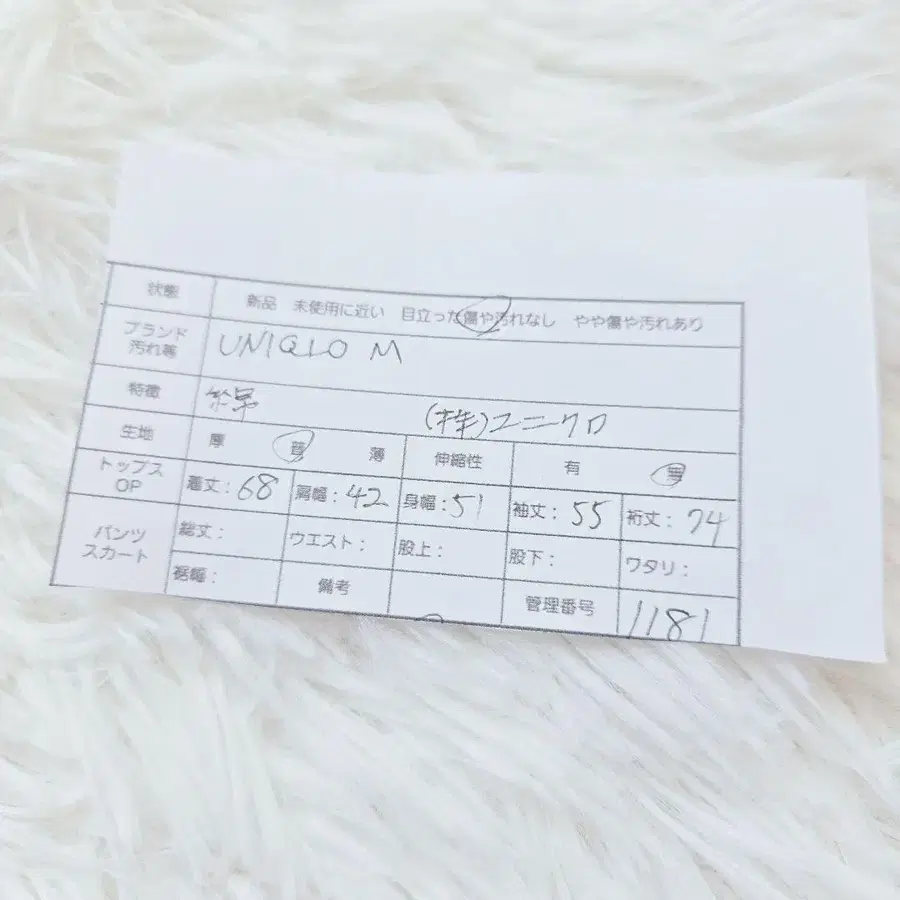 状態 新品 未使用に近い 目立った傷や汚れなし やや傷や汚れあり
ブランド
汚れ等 UNIQLO M
特徴 (株)ユニクロ
生地 厚 普 薄 伸縮性 有 無
トップス
OP 着丈:68 肩幅:42 身幅:51 袖丈:55 裄丈:74
パンツ
スカート 総丈: ウエスト: 股上: 股下: ワタリ:
裾幅: 備考 管理番号 1181